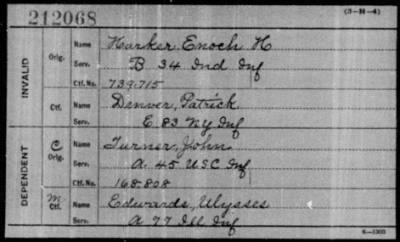 212068
(3-M-4)
INVALID
Orig.
Name Harker, Enoch H
Serv. B 34 Ind Inf
Ctf. No. 739.715
Ctf.
Name Denver, Patrick
Serv. E 83 NY Inf
DEPENDENT
C
Orig.
Name Turner, John
Serv. A. 45 USC Inf
Ctf. No. 168-808
M
Ctf.
Name Edwards, Ulysses
Serv. A 77 Ill Inf